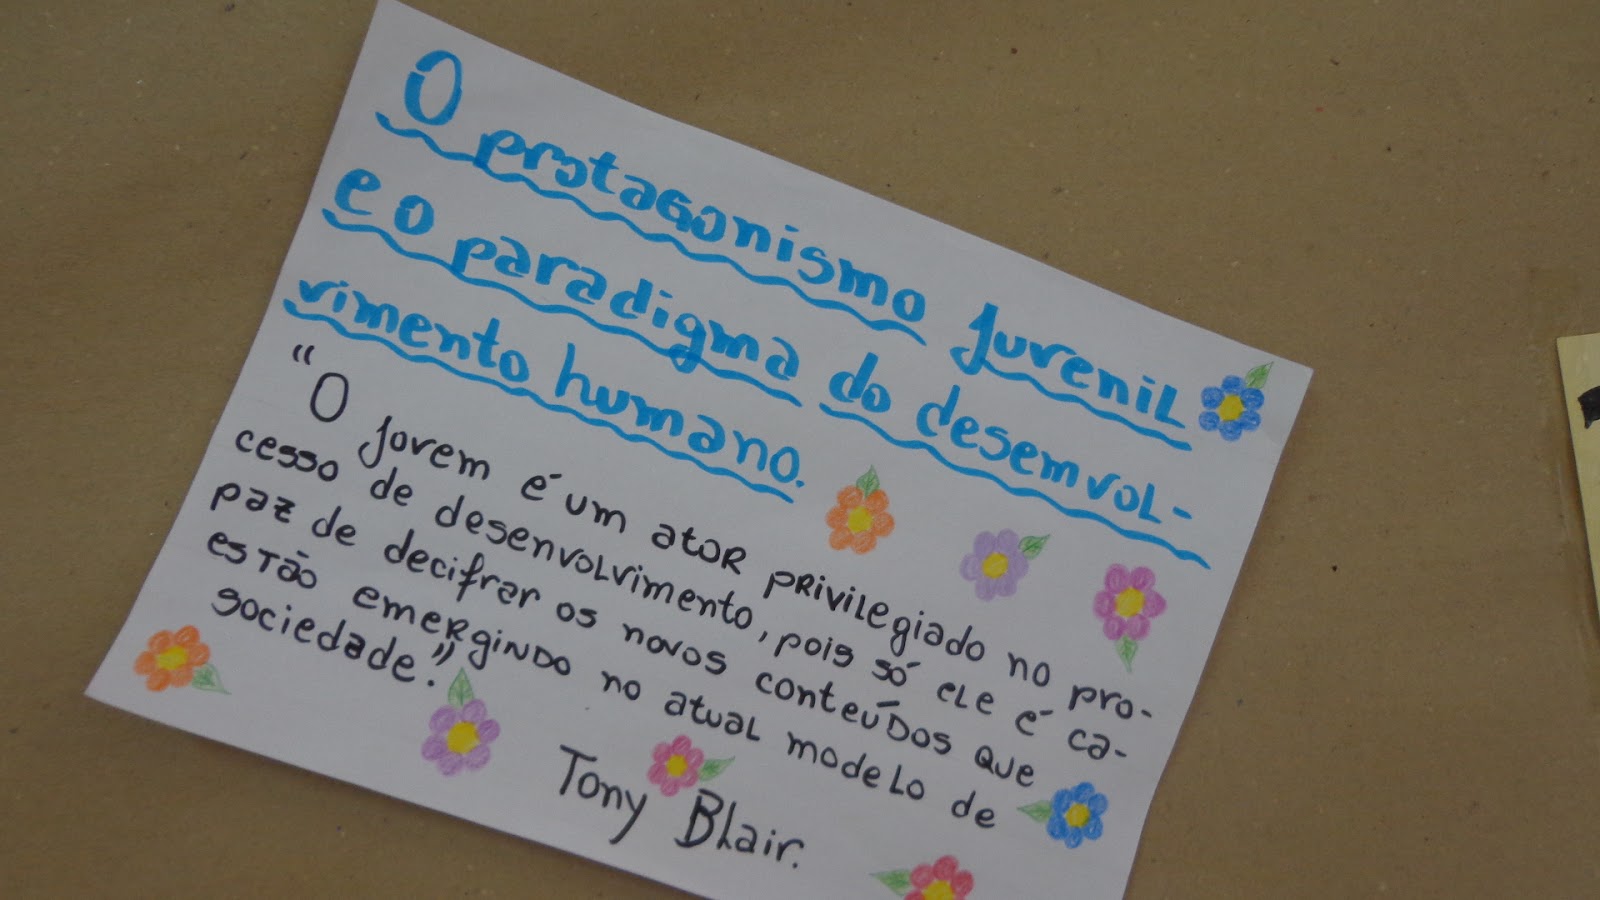 O protagonismo juvenil
e o paradigma do desemvol-
vimento humano.
"O jovem é um ator privilegiado no pro-
cesso de desenvolvimento, pois só ele é ca-
paz de decifrar os novos conteúdos que
estão emergindo no atual modelo de
sociedade."
Tony Blair.